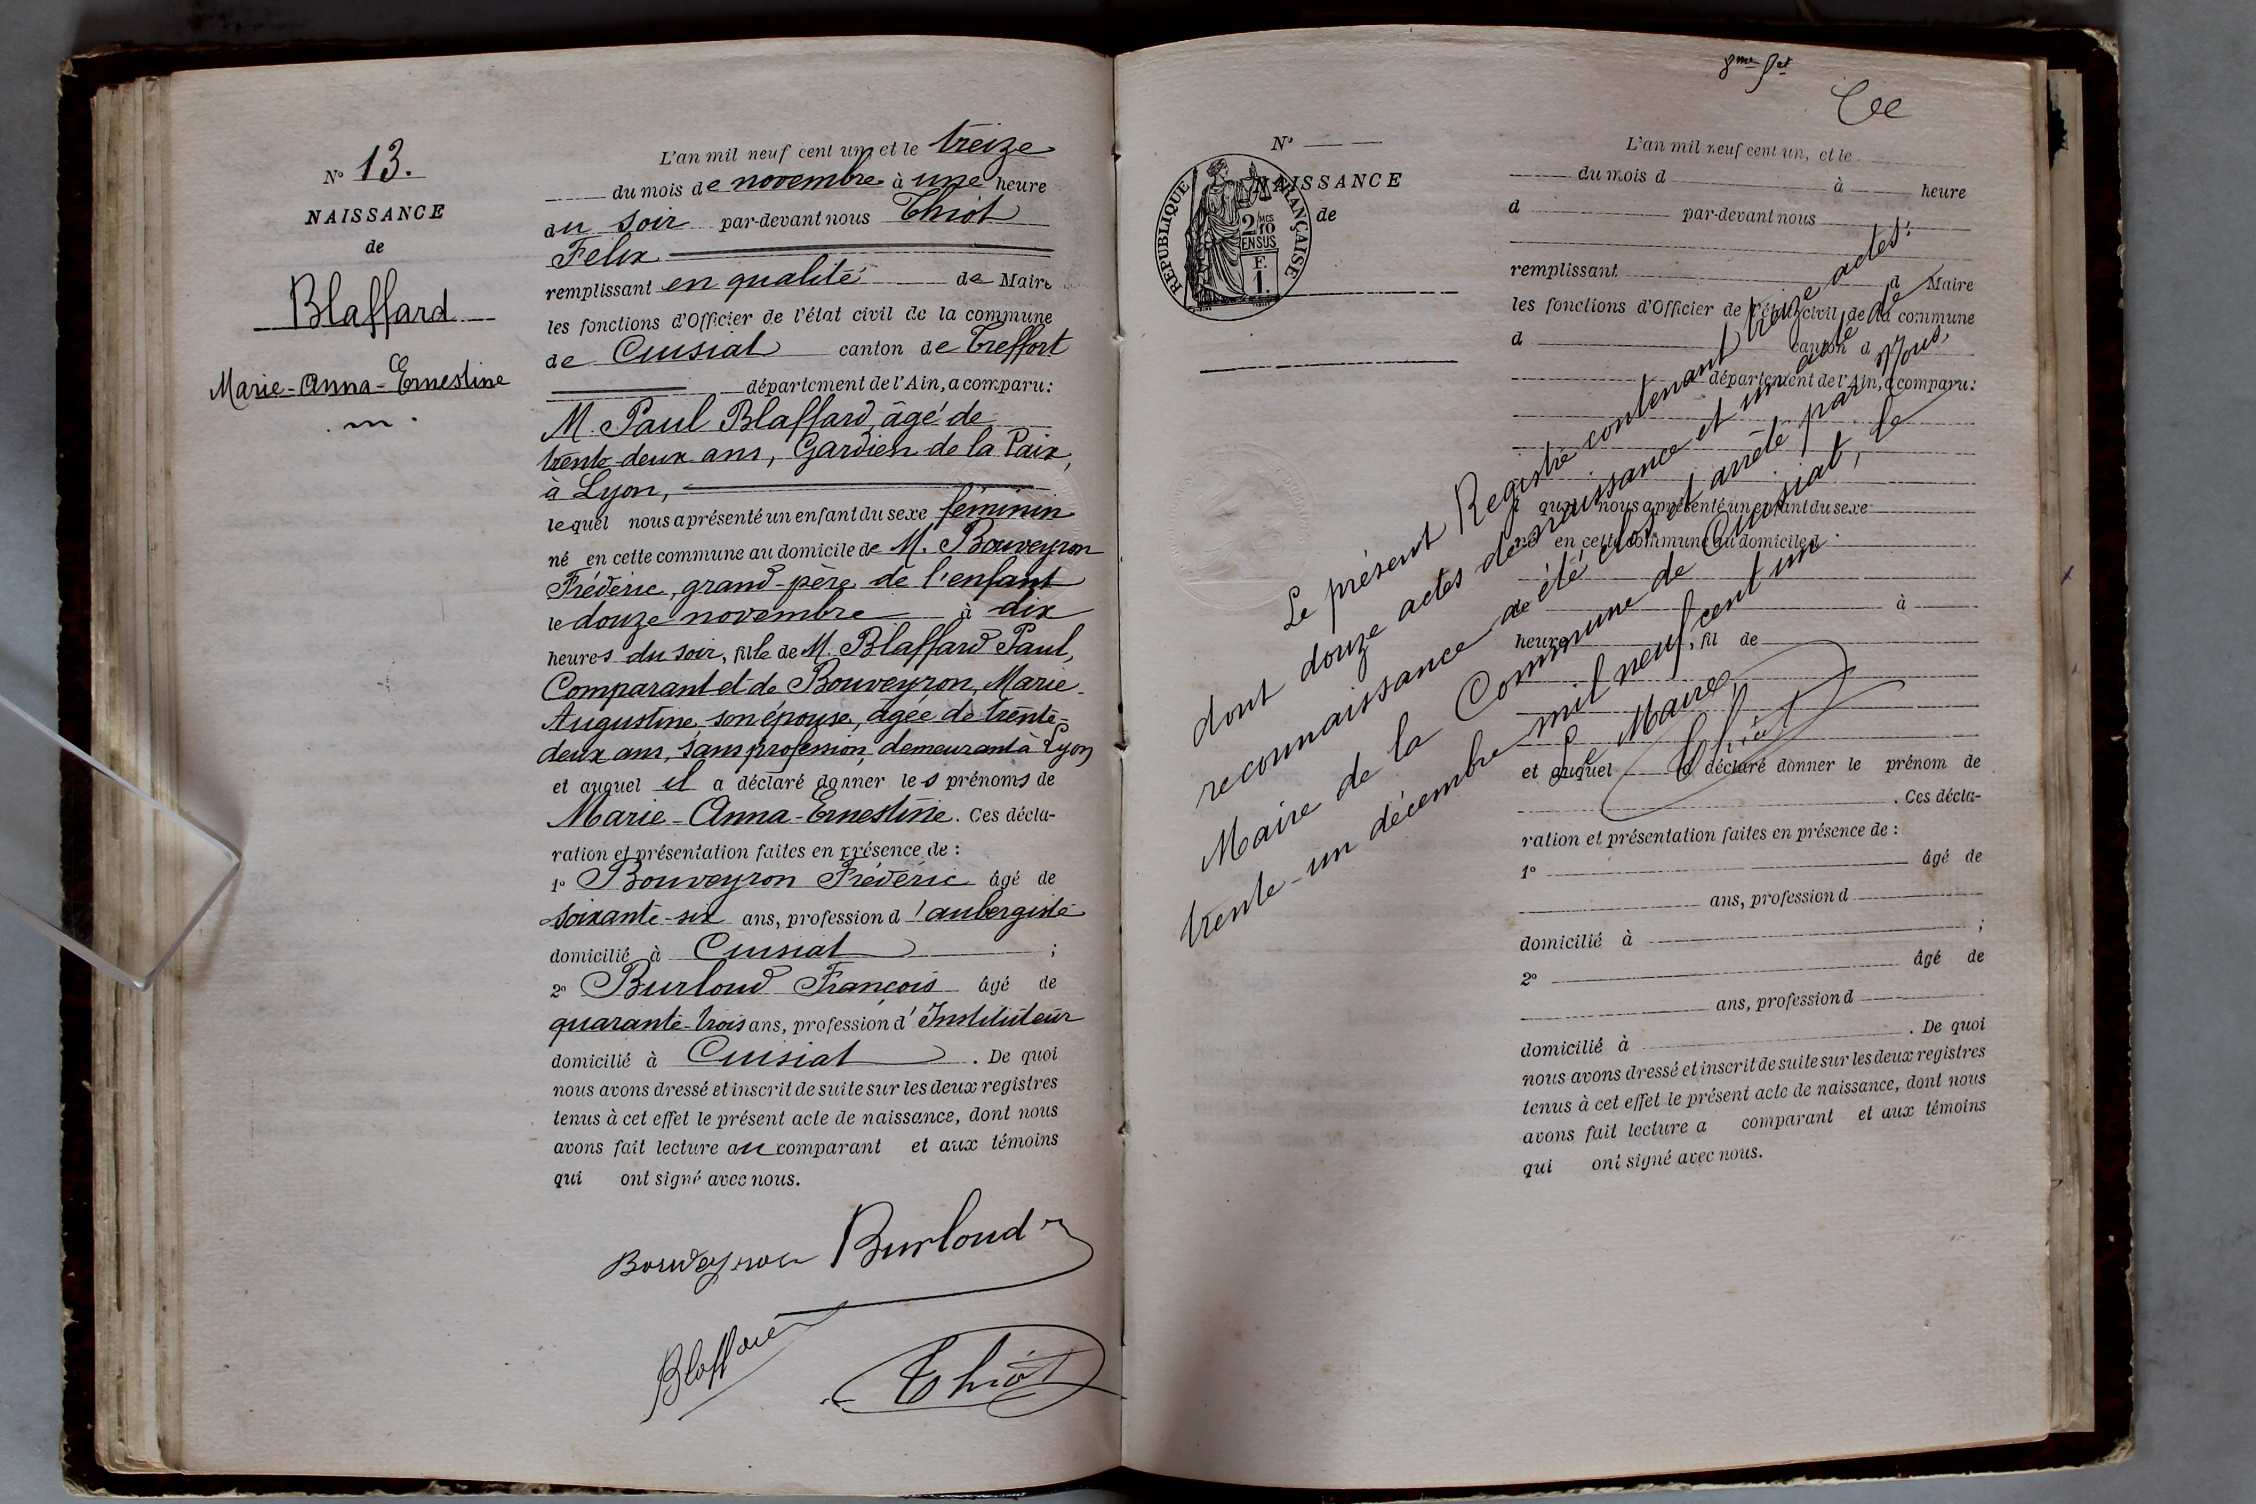 N° 13.
NAISSANCE
de
Blaffard
Marie-Anna-Ernestine
L'an mil neuf cent un, et le treize
du mois de novembre à une heure
du soir par-devant nous Thiot
Félix
remplissant en qualité de Maire
les fonctions d'Officier de l'état civil de la commune
de Cuisiat canton de Treffort
département de l'Ain, a comparu:
M. Paul Blaffard, âgé de
trente-deux ans, Gardien de la Paix,
à Lyon,
lequel nous a présenté un enfant du sexe féminin
né en cette commune au domicile de M. Bouveyron
Frédéric, grand-père de l'enfant
le douze novembre à dix
heures du soir, fille de M. Blaffard Paul,
Comparant et de Bouveyron, Marie-
Augustine, son épouse, âgée de trente-
deux ans, sans profession, demeurant à Lyon
et auquel il a déclaré donner les prénoms de
Marie-Anna-Ernestine. Ces décla-
ration et présentation faites en présence de :
1° Bouveyron Frédéric âgé de
soixante-six ans, profession d'aubergiste
domicilié à Cuisiat ;
2° Burloud François âgé de
quarante-trois ans, profession d'Instituteur
domicilié à Cuisiat. De quoi
nous avons dressé et inscrit de suite sur les deux registres
tenus à cet effet le présent acte de naissance, dont nous
avons fait lecture au comparant et aux témoins
qui ont signé avec nous.
Bouveyron Burloud
Blaffard
Thiot
N°
NAISSANCE
de
RÉPUBLIQUE FRANÇAISE
2 MES
10
EN SUS
F.
1.
L'an mil neuf cent un, et le
du mois d à heure
d par-devant nous
remplissant d Maire
les fonctions d'Officier de l'état civil de la commune
d canton d
département de l'Ain, a comparu:
quel nous a présenté un enfant du sexe
né en cette commune au domicile d
le à
heure , fil de
et auquel a déclaré donner le prénom de
. Ces décla-
ration et présentation faites en présence de :
1° âgé de
ans, profession d
domicilié à ;
2° âgé de
ans, profession d
domicilié à . De quoi
nous avons dressé et inscrit de suite sur les deux registres
tenus à cet effet le présent acte de naissance, dont nous
avons fait lecture a comparant et aux témoins
qui ont signé avec nous.
Le présent Registre contenant treize actes:
dont douze actes de naissance et un acte de
reconnaissance a été clos et arrêté par Nous
Maire de la Commune de Cuisiat, le
trente-un décembre mil neuf cent un.
Le Maire,
Thiot